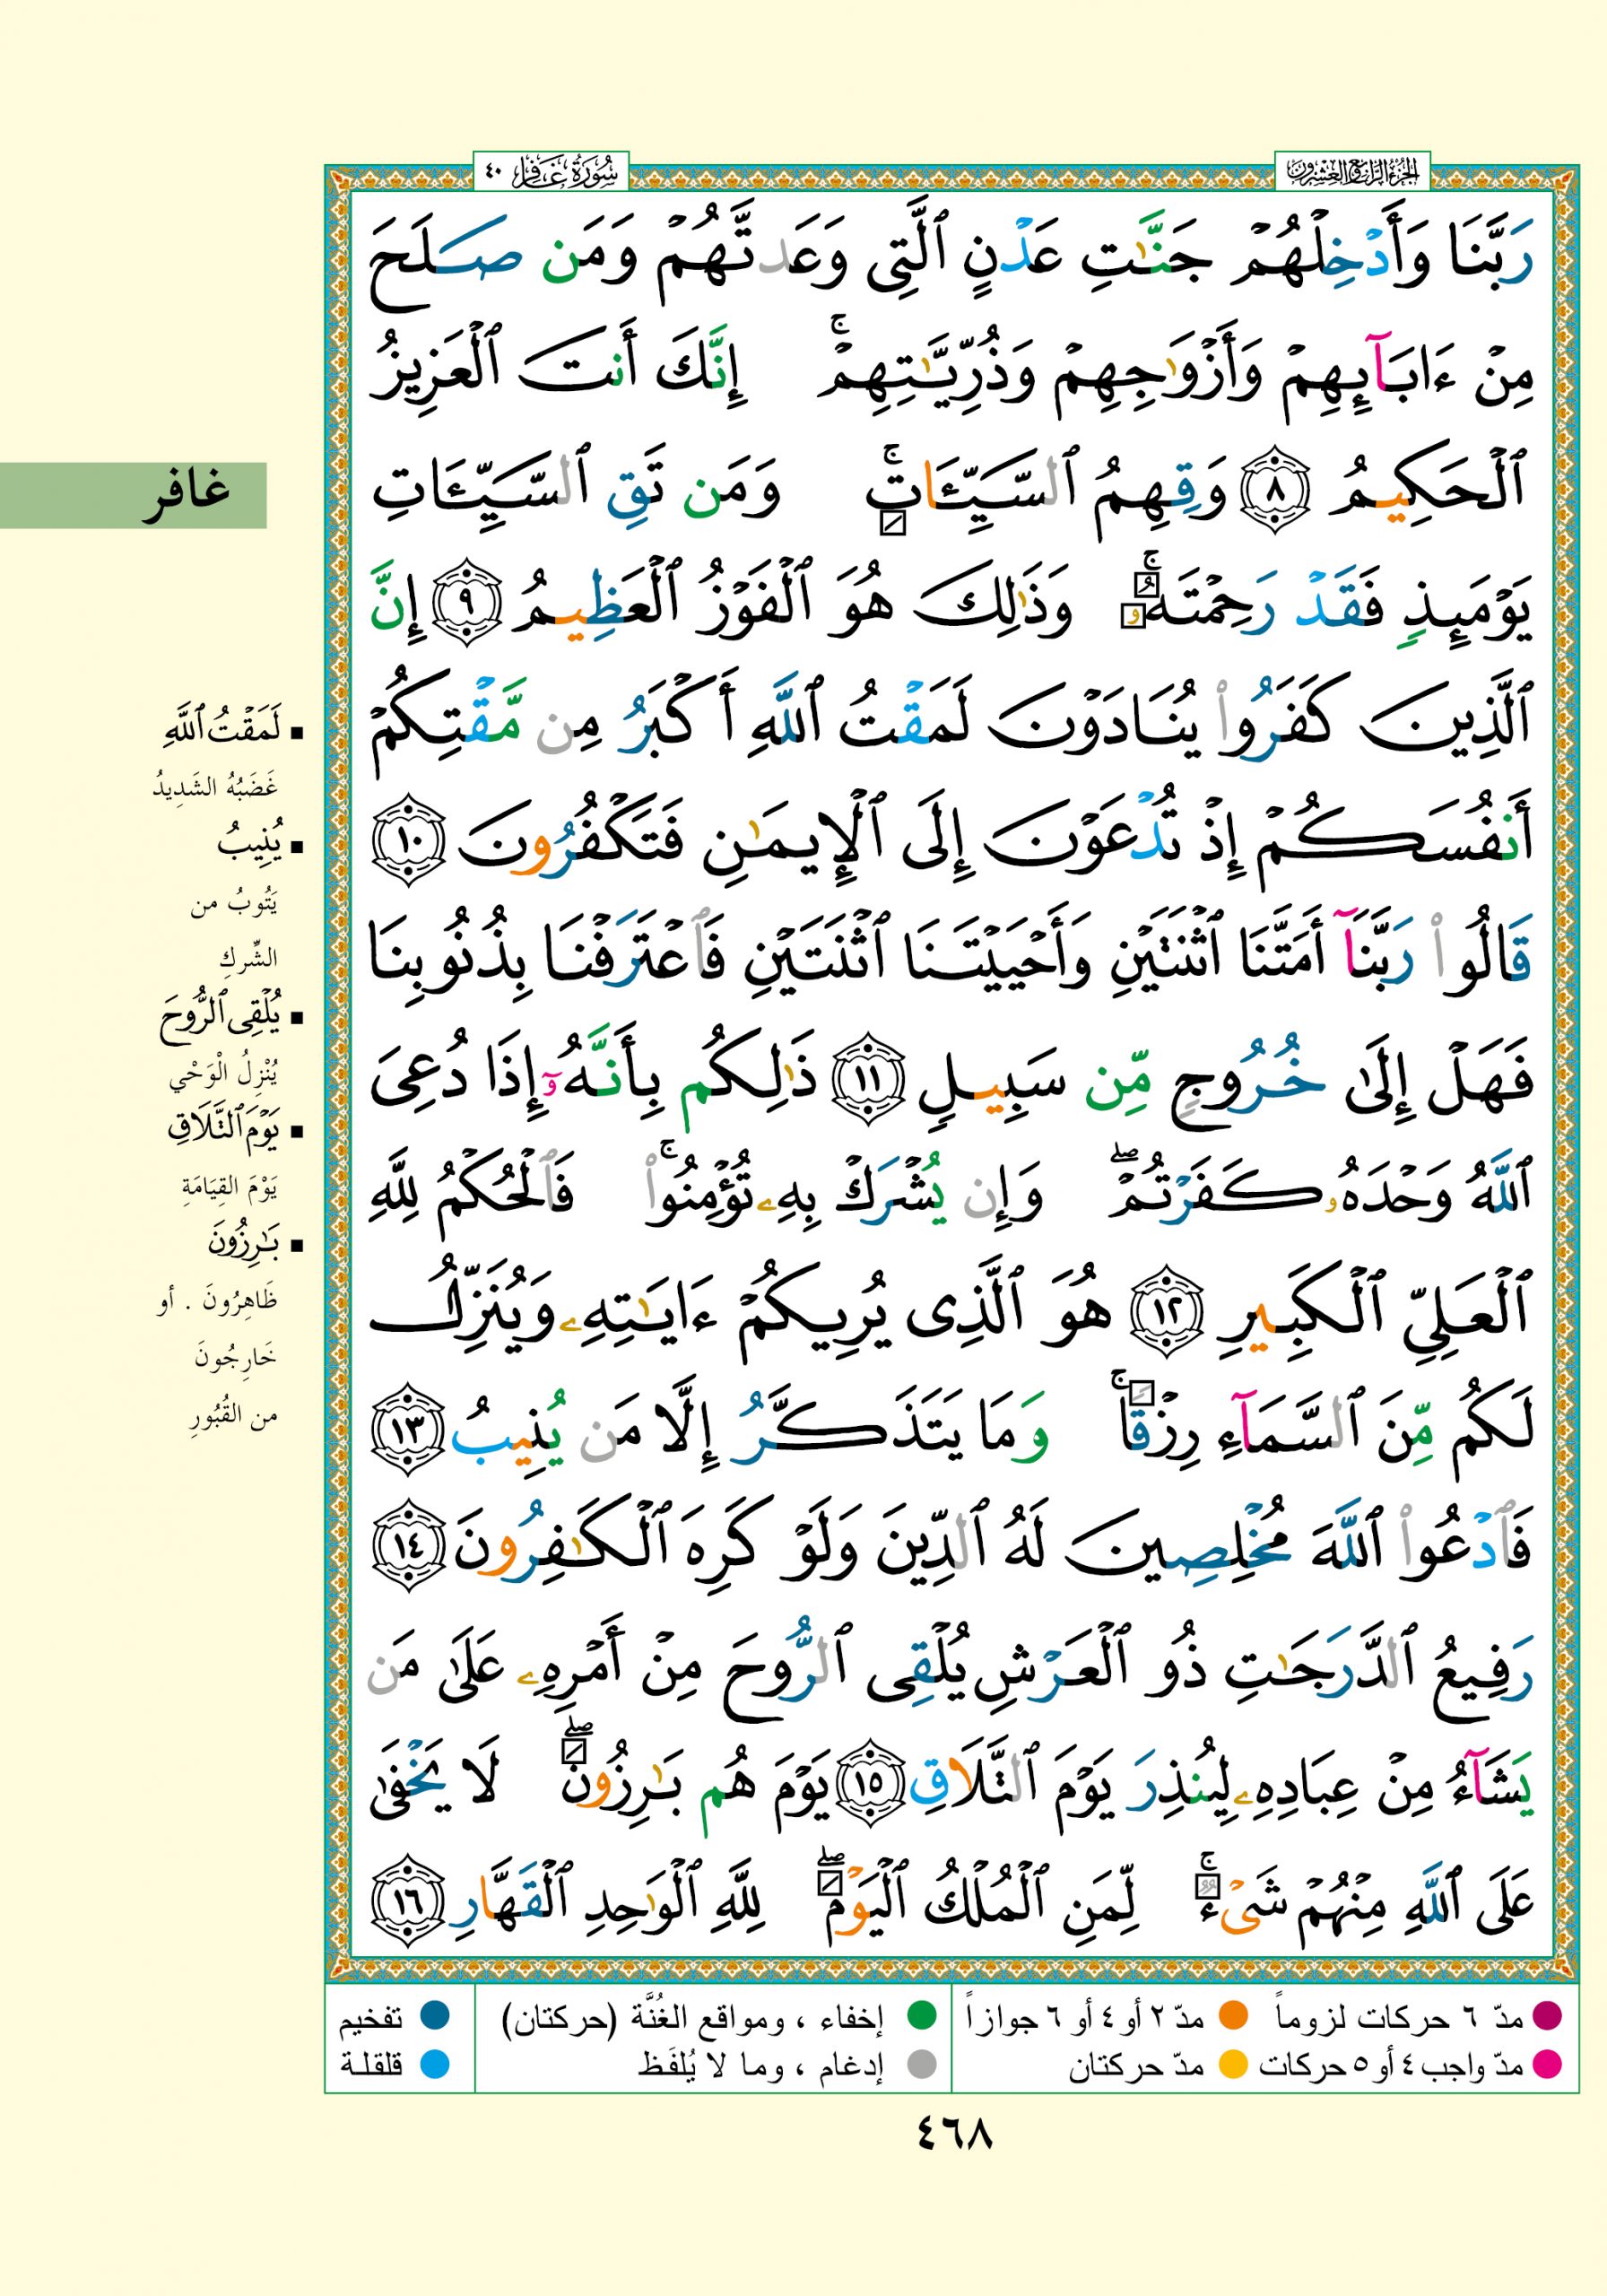 الجزء الرابع والعشرون
سُورَةُ غَافِرٍ ٤٠
رَبَّنَا وَأَدْخِلْهُمْ جَنَّٰتِ عَدْنٍ ٱلَّتِى وَعَدتَّهُمْ وَمَن صَلَحَ
مِنْ ءَابَآئِهِمْ وَأَزْوَٰجِهِمْ وَذُرِّيَّٰتِهِمْ ۚ إِنَّكَ أَنتَ ٱلْعَزِيزُ
ٱلْحَكِيمُ ٨ وَقِهِمُ ٱلسَّيِّـَٔاتِ ۚ وَمَن تَقِ ٱلسَّيِّـَٔاتِ
يَوْمَئِذٍ فَقَدْ رَحِمْتَهُۥ ۚ وَذَٰلِكَ هُوَ ٱلْفَوْزُ ٱلْعَظِيمُ ٩ إِنَّ
ٱلَّذِينَ كَفَرُوا۟ يُنَادَوْنَ لَمَقْتُ ٱللَّهِ أَكْبَرُ مِن مَّقْتِكُمْ
أَنفُسَكُمْ إِذْ تُدْعَوْنَ إِلَى ٱلْإِيمَٰنِ فَتَكْفُرُونَ ١٠
قَالُوا۟ رَبَّنَآ أَمَتَّنَا ٱثْنَتَيْنِ وَأَحْيَيْتَنَا ٱثْنَتَيْنِ فَٱعْتَرَفْنَا بِذُنُوبِنَا
فَهَلْ إِلَىٰ خُرُوجٍ مِّن سَبِيلٍ ١١ ذَٰلِكُم بِأَنَّهُۥٓ إِذَا دُعِىَ
ٱللَّهُ وَحْدَهُۥ كَفَرْتُمْ ۖ وَإِن يُشْرَكْ بِهِۦ تُؤْمِنُوا۟ ۚ فَٱلْحُكْمُ لِلَّهِ
ٱلْعَلِىِّ ٱلْكَبِيرِ ١٢ هُوَ ٱلَّذِى يُرِيكُمْ ءَايَٰتِهِۦ وَيُنَزِّلُ
لَكُم مِّنَ ٱلسَّمَآءِ رِزْقًا ۚ وَمَا يَتَذَكَّرُ إِلَّا مَن يُنِيبُ ١٣
فَٱدْعُوا۟ ٱللَّهَ مُخْلِصِينَ لَهُ ٱلدِّينَ وَلَوْ كَرِهَ ٱلْكَٰفِرُونَ ١٤
رَفِيعُ ٱلدَّرَجَٰتِ ذُو ٱلْعَرْشِ يُلْقِى ٱلرُّوحَ مِنْ أَمْرِهِۦ عَلَىٰ مَن
يَشَآءُ مِنْ عِبَادِهِۦ لِيُنذِرَ يَوْمَ ٱلتَّلَاقِ ١٥ يَوْمَ هُم بَٰرِزُونَ ۖ لَا يَخْفَىٰ
عَلَى ٱللَّهِ مِنْهُمْ شَىْءٌ ۚ لِّمَنِ ٱلْمُلْكُ ٱلْيَوْمَ ۖ لِلَّهِ ٱلْوَٰحِدِ ٱلْقَهَّارِ ١٦
غافر
▪ لَمَقْتُ ٱللَّهِ
غَضَبُهُ الشَدِيدُ
▪ يُنِيبُ
يَتُوبُ من
الشِّركِ
▪ يُلْقِى ٱلرُّوحَ
يُنْزِلُ الْوَحْي
▪ يَوْمَ ٱلتَّلَاقِ
يَوْمَ القِيَامَةِ
▪ بَٰرِزُونَ
ظَاهِرُونَ . أو
خَارِجُونَ
من القُبُورِ
مدّ ٦ حركات لزوماً
مدّ ٢ أو ٤ أو ٦ جوازاً
إخفاء ، ومواقع الغُنَّة (حركتان)
تفخيم
مدّ واجب ٤ أو ٥ حركات
مدّ حركتان
إدغام ، وما لا يُلفَظ
قلقلة
٤٦٨